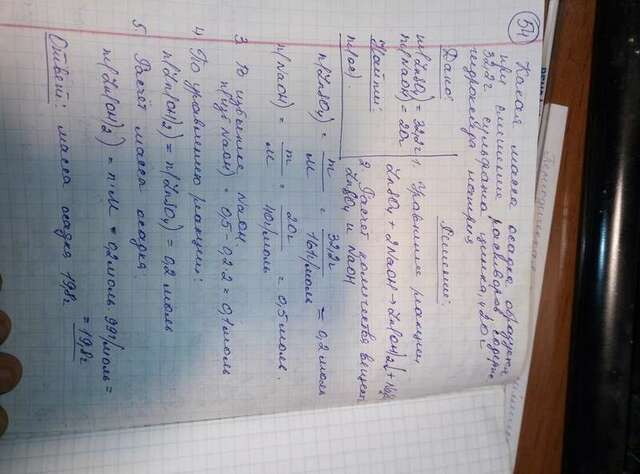 54 Какая масса осадка образуется
при смешении растворов, содерж.
32,2г сульфата цинка, и 20г
гидроксида натрия
Дано:
m(ZnSO4) = 32,2г
m(NaOH) = 20г
Найти:
m(ос).
Решение:
1. Уравнение реакции
ZnSO4 + 2NaOH → Zn(OH)2↓ +
2 Расчёт количества вещест
ZnSO4 и NaOH
n(ZnSO4) = m/M = 32,2г/161г/моль = 0,2 моль
n(NaOH) = m/M = 20г/40г/моль = 0,5 моль.
3 В избытке NaOH
n(изб NaOH) = 0,5 - 0,2·2 = 0,1 моль
4 По уравнению реакции:
n(Zn(OH)2) = n(ZnSO4) = 0,2 моль
5. Расчёт массы осадка.
m(Zn(OH)2) = n·M = 0,2 моль·99г/моль =
= 19,8г
Ответ: масса осадка 19,8г